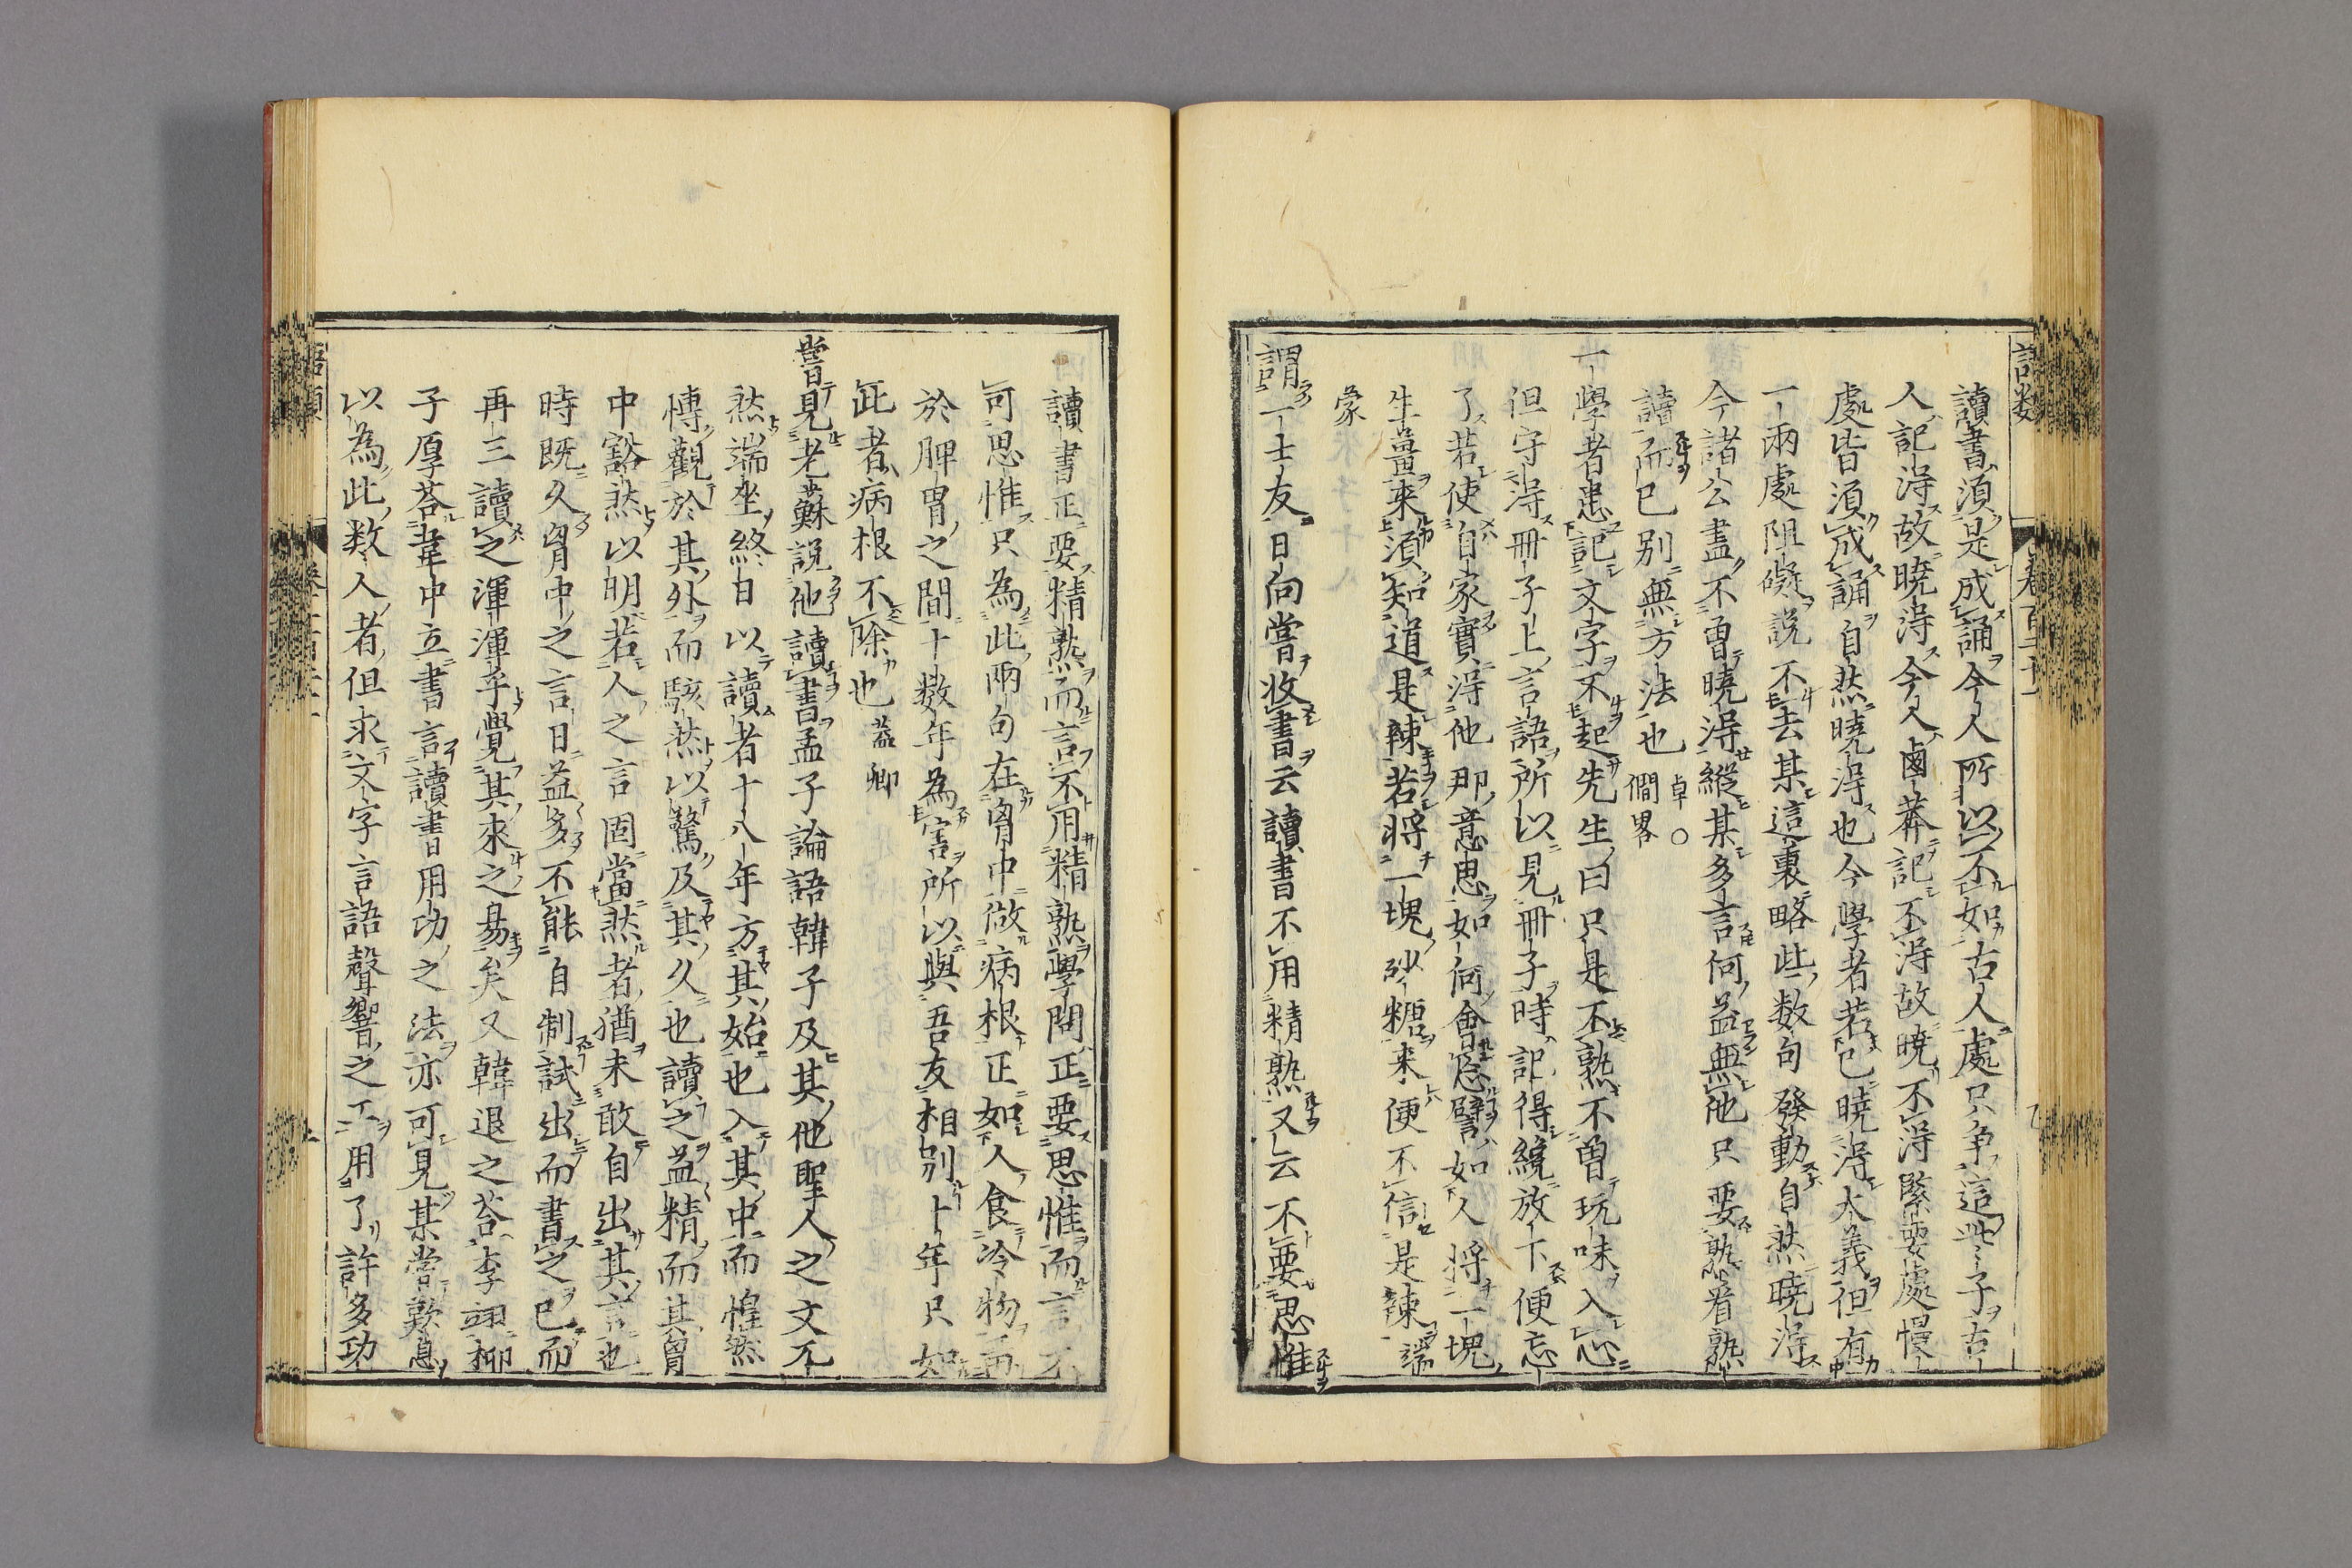 讀書須是成誦今人所以不如古人處只争這些子古
人記得故曉得今人鹵莽記不得故曉不得緊要處慢
處皆須成誦自然曉得也今學者若已曉得大義但有
一兩處阻礙說不去某這裏略些数句發動自然曉得
今諸公盡不曽曉得縱某多言何益無他只要熟看熟
讀而已別無方法也卓○僩畧
一學者患記文字不起先生曰只是不熟不曽玩味入心
但守得冊子上言語所以見冊子時記得纔放下便忘
了若使自家實得他那意思如何會忘譬如人將一塊
生薑來須知道是辣若將一塊砂糖来便不信是辣端
蒙
謂一士友日向嘗收書云讀書不用精熟又云不要思惟
讀書正要精熟而言不用精熟學問正要思惟而言不
可思惟只為此兩句在胷中做病根正如人食冷物
於脾胃之間十数年為害所以與吾友相别十年只如
此者病根不除也蓋卿
甞見老蘇說他讀書孟子論語韓子及其他聖人之文兀
然端坐終日以讀者十八年方其始也入其中而惶然
愽觀於其外而駭然以驚及其久也讀之益精而其胷
中豁然以明若人之言固當然者猶未敢自出其言也
時既久胷中之言日益多不能自制試出而書之已而
再三讀之渾渾乎覺其來之易矣又韓退之荅李翊柳
子厚荅韋中立書言讀書用功之法亦可見某嘗歎息
以為此数人者但求文字言語聲響之工用了許多功